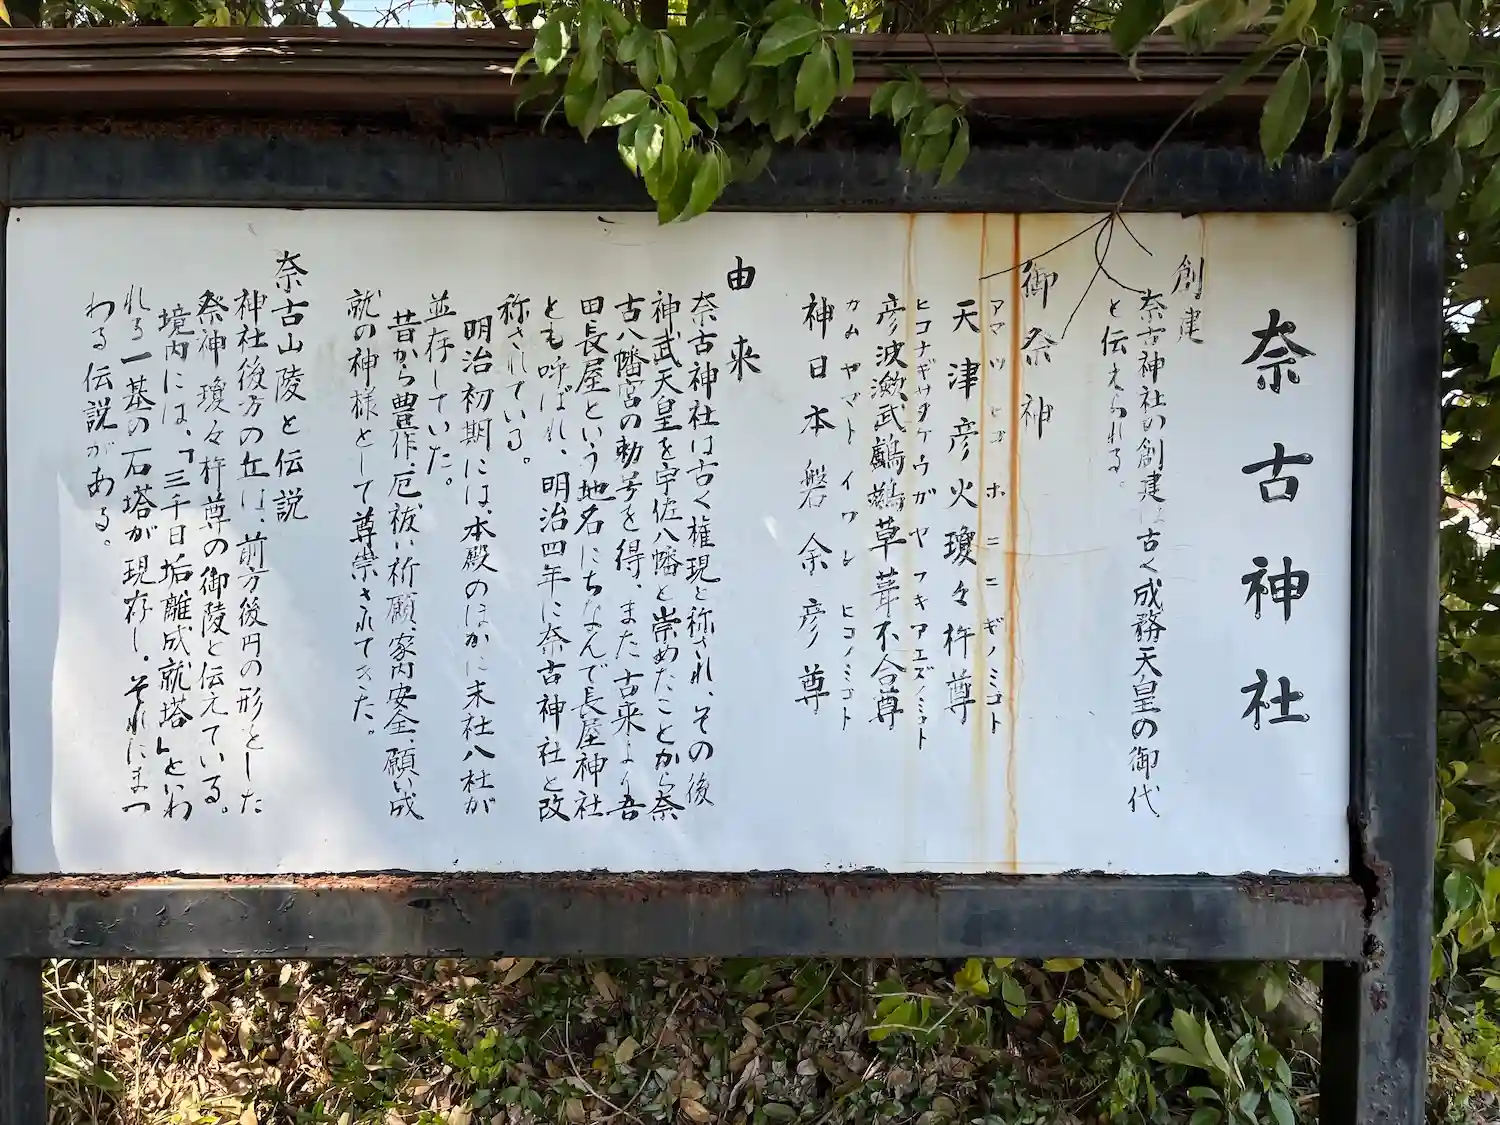 奈古神社
創建
奈古神社の創建は古く成務天皇の御代
と伝えられる。
御祭神
アマツヒコホニニギノミコト
天津彦火瓊々杵尊
ヒコナギサタケウガヤフキアエズノミコト
彦波瀲武鸕鶿草葺不合尊
カムヤマトイワレヒコノミコト
神日本磐余彦尊
由来
奈古神社は古く権現と称され、その後
神武天皇を宇佐八幡と崇めたことから奈
古八幡宮の勅号を得、また古来より吾
田長屋という地名にちなんで長屋神社
とも呼ばれ、明治四年に奈古神社と改
称されている。
明治初期には、本殿のほかに末社八社が
並存していた。
昔から豊作、厄祓い祈願、家内安全、願い成
就の神様として尊崇されてきた。
奈古山陵と伝説
神社後方の丘は、前方後円の形をした
祭神瓊々杵尊の御陵と伝えている。
境内には、「三千日垢離成就塔」といわ
れる一基の石塔が現存し、それにまつ
わる伝説がある。